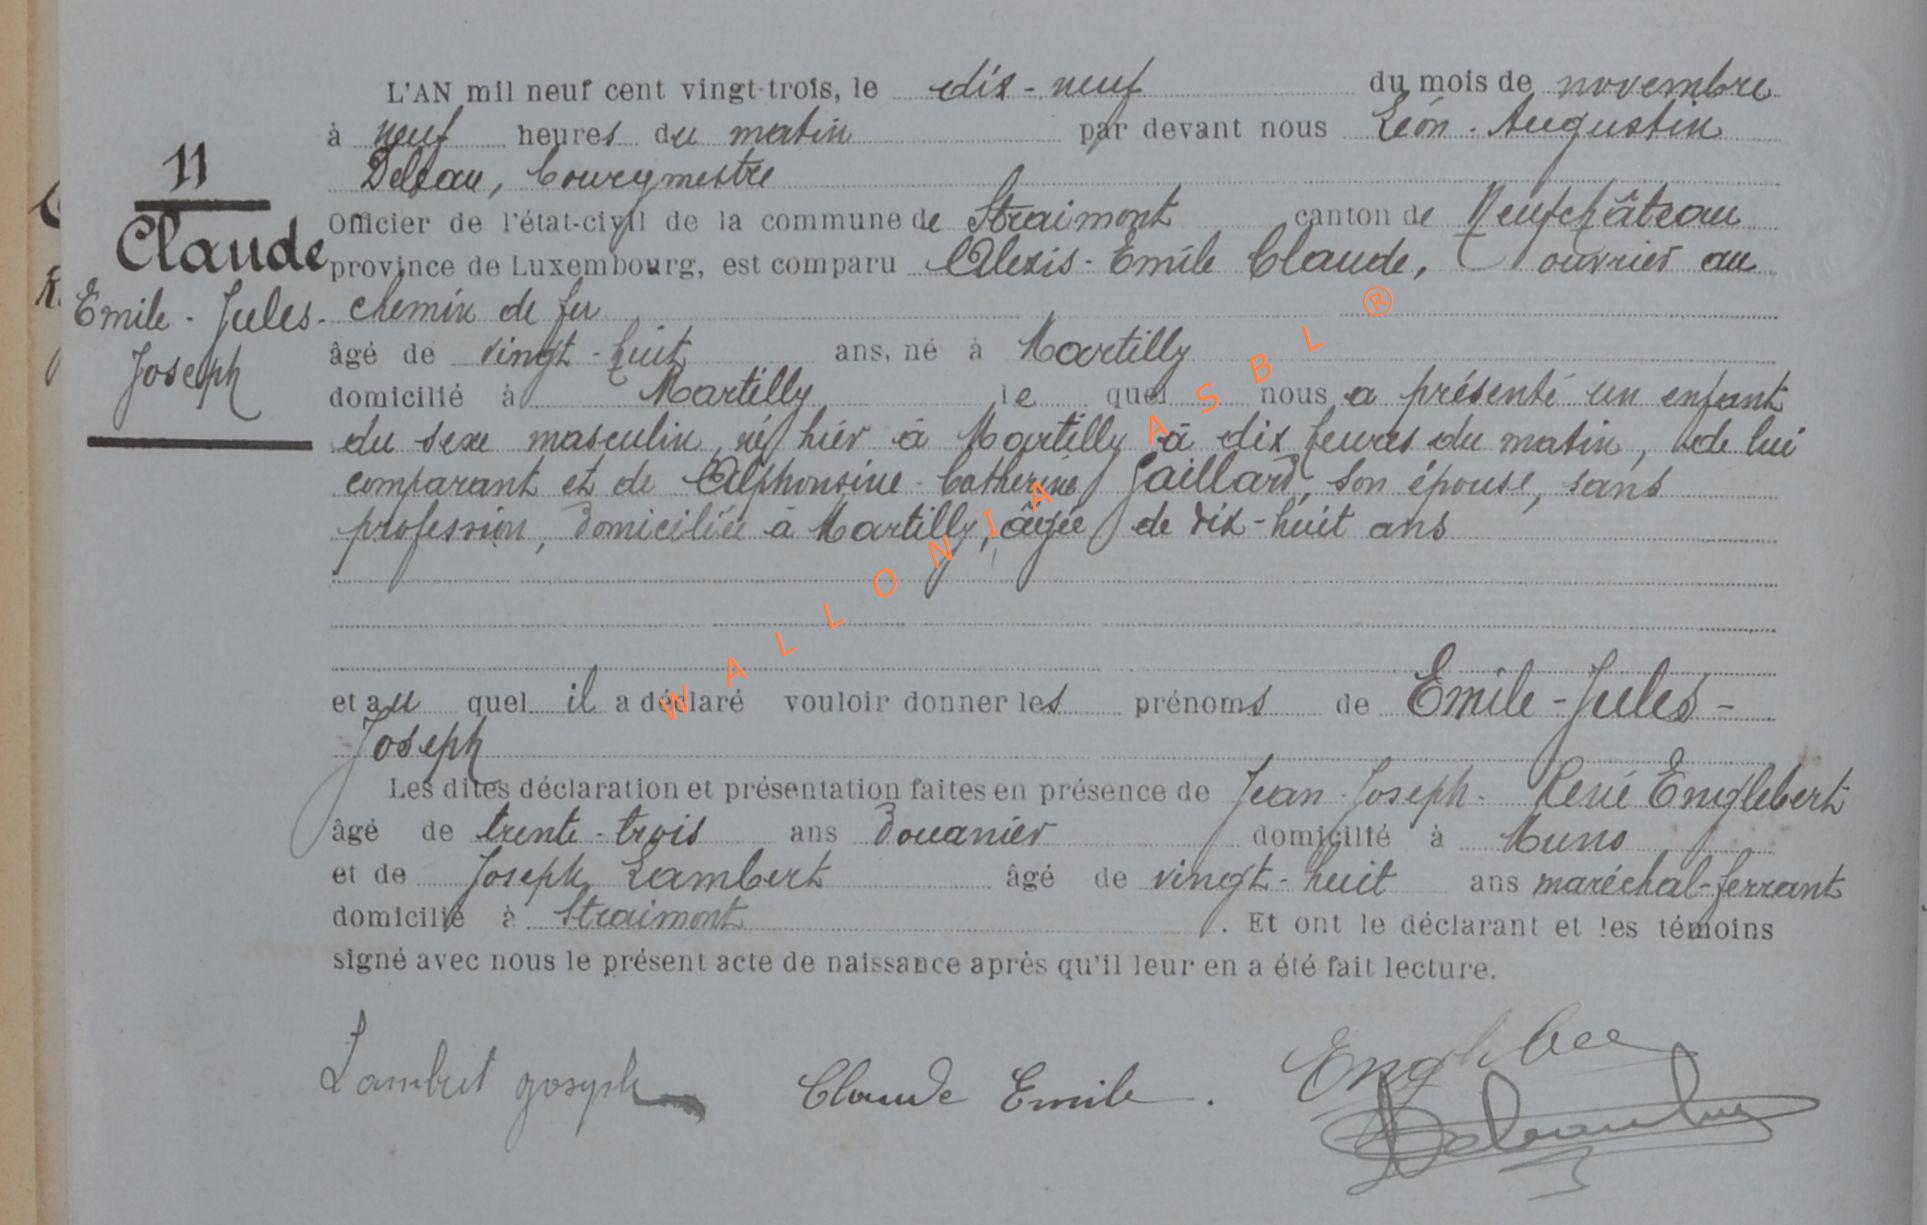 L'AN mil neuf cent vingt-trois, le dix-neuf du mois de novembre
à neuf heures du matin par devant nous Léon-Augustin
Deleau, bourgmestre
Officier de l'état-civil de la commune de Straimont canton de Neufchâteau
province de Luxembourg, est comparu Alexis-Emile Claude, ouvrier au
chemin de fer
âgé de vingt-huit ans, né à Martilly
domicilié à Martilly lequel nous a présenté un enfant
du sexe masculin, né hier à Martilly à dix heures du matin, de lui
comparant et de Alphonsine-Catherine Gaillard, son épouse, sans
profession, domiciliée à Martilly, âgée de dix-huit ans
et au quel il a déclaré vouloir donner les prénoms de Emile-Jules-
Joseph
Les dites déclaration et présentation faites en présence de Jean-Joseph-René Englebert
âgé de trente-trois ans douanier domicilié à Muno
et de Joseph Lambert âgé de vingt-huit ans maréchal-ferrant
domicilié à Straimont. Et ont le déclarant et les témoins
signé avec nous le présent acte de naissance après qu'il leur en a été fait lecture.
11
Claude
Emile-Jules-
Joseph
Lambert Joseph Claude Emile.
WALLONIA ASBL ®